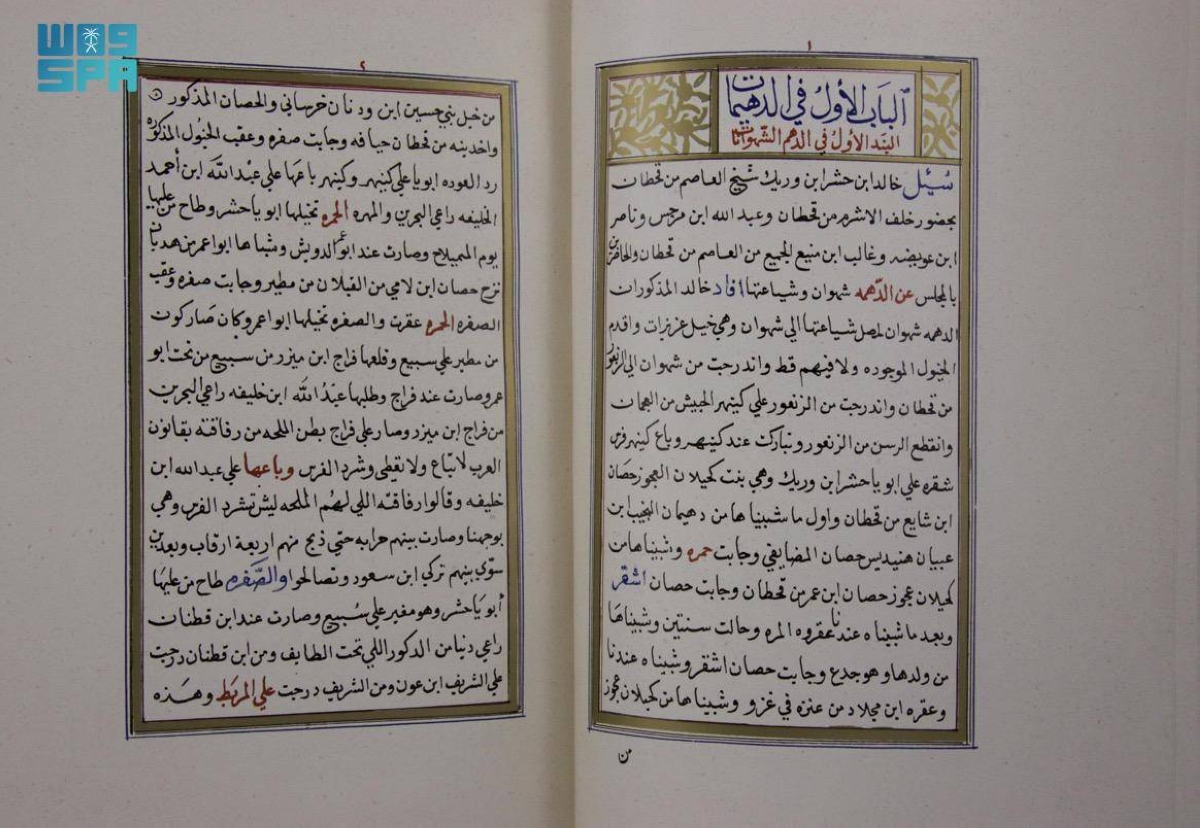 واس
SPA
١
الباب الأول في الدهيمات
البند الأول في الدهم الشهوانات
سُئِل خالد ابن حشر ابن وريك شيخ العاصم من قحطان
بحضور خلف الاشرم من قحطان وعبد الله ابن مرجس وناصر
ابن عويضه وغالب ابن منيع الجميع من العاصم من قحطان والحاضرين
بالمجلس عن الدهمه شهوان وشياعتها افاد خالد المذكور ان
الدهمه شهوان اصل شياعتها الي شهوان وهي خيل عزيزات واقدم
الخيول الموجوده ولا فيهم قط واندرجت من شهوان الي الزنعور
من قحطان واندرجت من الزنعور علي كنيهر الجبيش من العجمان
وانقطع الرسن من الزنعور وتباركت عند كنيهر وباع كنيهر فرس
شقره علي ابو يا حشر ابن وريك وهي بنت كحيلان العجوز حصان
ابن شايع من قحطان واول ما شبيناها من دهيمان النجيب ابن
عبيان هنيديس حصان المضايفي وجابت حمره وشبيناها من
كحيلان عجوز حصان ابن عمر من قحطان وجابت حصان اشقر
وبعد ما شبيناه عندنا عقروه المره وحالت سنتين وشبيناها
من ولدها وهو جدع وجابت حصان اشقر وشبيناه عندنا
وعقره ابن مجلاد من عنزه في غزو وشبيناها من كحيلان عجوز
من
٢
من خيل بني حسين ابن ودنان خرساني والحصان المذكور
واخدينه من قحطان حيافه وجابت صفره وعقب الخيول المذكوره
رد العوده ابويا علي كنيهر وكنيهر باعها علي عبد الله ابن أحمد
الخليفه راعي البحرين والمهره الحمره تخيلها ابو يا حشر وطاح من عليها
يوم المنيبلاح وصارت عند ابو عمر الدويش وشباها ابو اعمر من هدبان
نزح حصان ابن لامي من القبلان من مطير وجابت صفره وعقب
الصفره الحمره عقرت والصفره تخيلها ابو اعمر وكان صار كون
من مطير علي سبيع وقلعها فراج ابن ميزر من سبيع من تحت ابو
عمر وصارت عند فراج وطلبها عبد الله ابن خليفه راعي البحرين
من فراج ابن ميزر وصار علي فراج بطن الملحه من رفاقته بقانون
العرب لا تباع ولا تقطي وشرد الفرس وباعها علي عبد الله ابن
خليفه وقالوا رفاقته اللي لهم الملحه ليش تشرد الفرس وهي
بوجهنا وصارت بينهم حرابه حتي ذبح منهم اربعة ارقاب وبعدين
سوّي بينهم تركي ابن سعود وتصالحوا والصفره طاح من عليها
أبو يا حشر وهو مغير علي سبيع وصارت عند ابن قطنان
راعي دنيا من الدكور اللي تحت الطايف ومن ابن قطنان درجت
علي الشريف ابن عون ومن الشريف درجت علي المربط وهذه